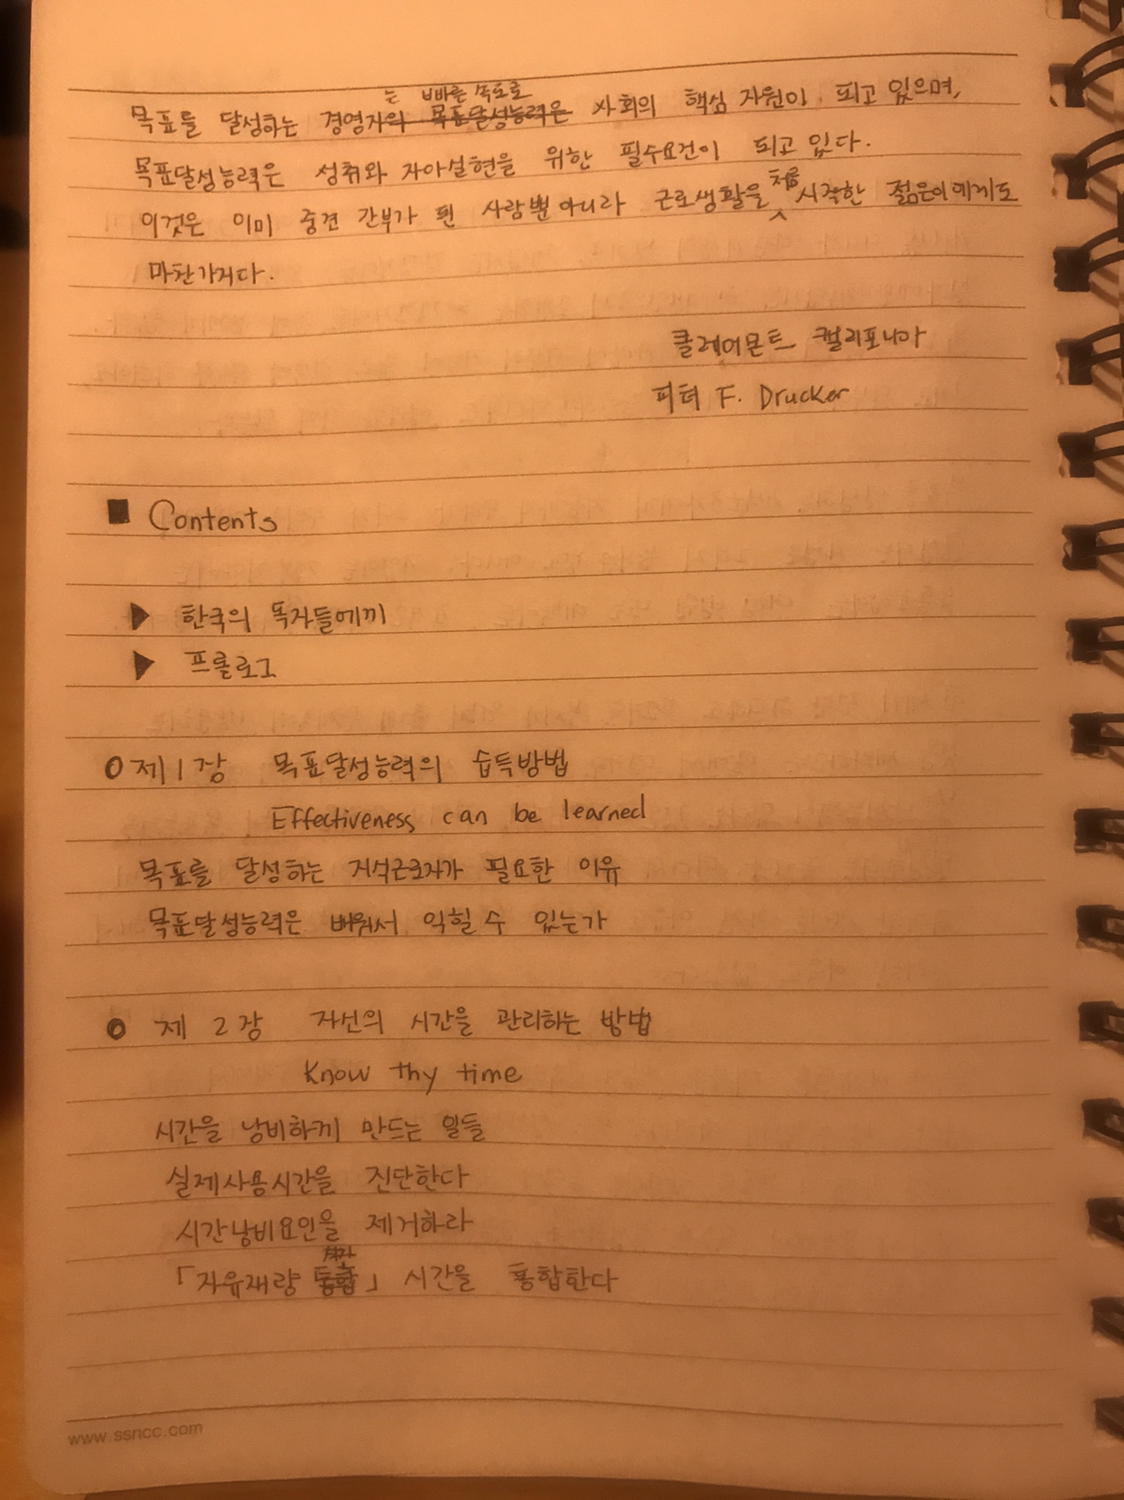 목표를 달성하는 경영자는 빠른 속도로 사회의 핵심 자원이 되고 있으며,
목표달성능력은 성취와 자아실현을 위한 필수요건이 되고 있다.
이것은 이미 중견 간부가 된 사람뿐 아니라 근로생활을 처음 시작한 젊은이에게도
마찬가지다.
클레어몬트 캘리포니아
피터 F. Drucker
■ Contents
▶ 한국의 독자들에게
▶ 프롤로그
O 제1장 목표달성능력의 습득방법
Effectiveness can be learned
목표를 달성하는 지식근로자가 필요한 이유
목표달성능력은 배워서 익힐 수 있는가
O 제 2장 자신의 시간을 관리하는 방법
Know thy time
시간을 낭비하게 만드는 일들
실제사용시간을 진단한다
시간낭비요인을 제거하라
「자유재량」 시간을 통합한다
www.ssncc.com